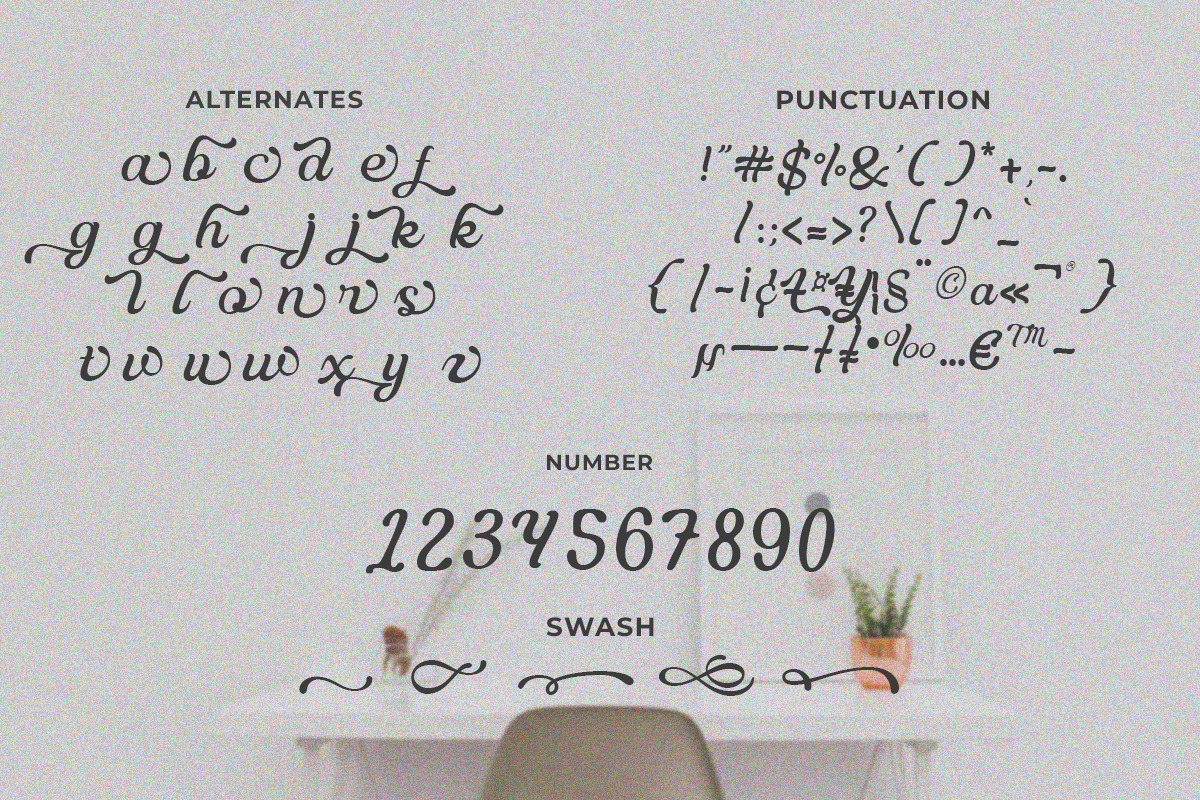 ALTERNATES
a b c d e f
g g h j j k k
l l o n r s
t v w w x y z
PUNCTUATION
! " # $ % & ' ( ) * + , - .
/ : ; < = > ? \ [ ] ^ _ `
{ | ~ ¡ ¢ £ ¤ ¥ ¦ § ¨ © ª « ¬ ® }
µ — – † ‡ • ‰ … € ™ ~
NUMBER
1234567890
SWASH